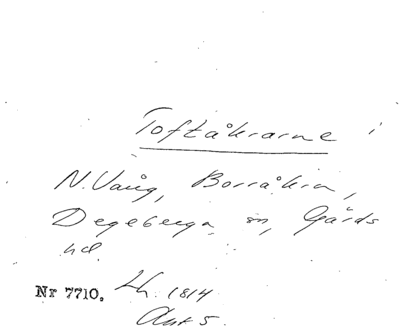 Toftåkrarne i
N. Vång, Borråkra,
Degeberga sn, Gärds
hd
Nr 7710. Lh. 1814
Akt 5.